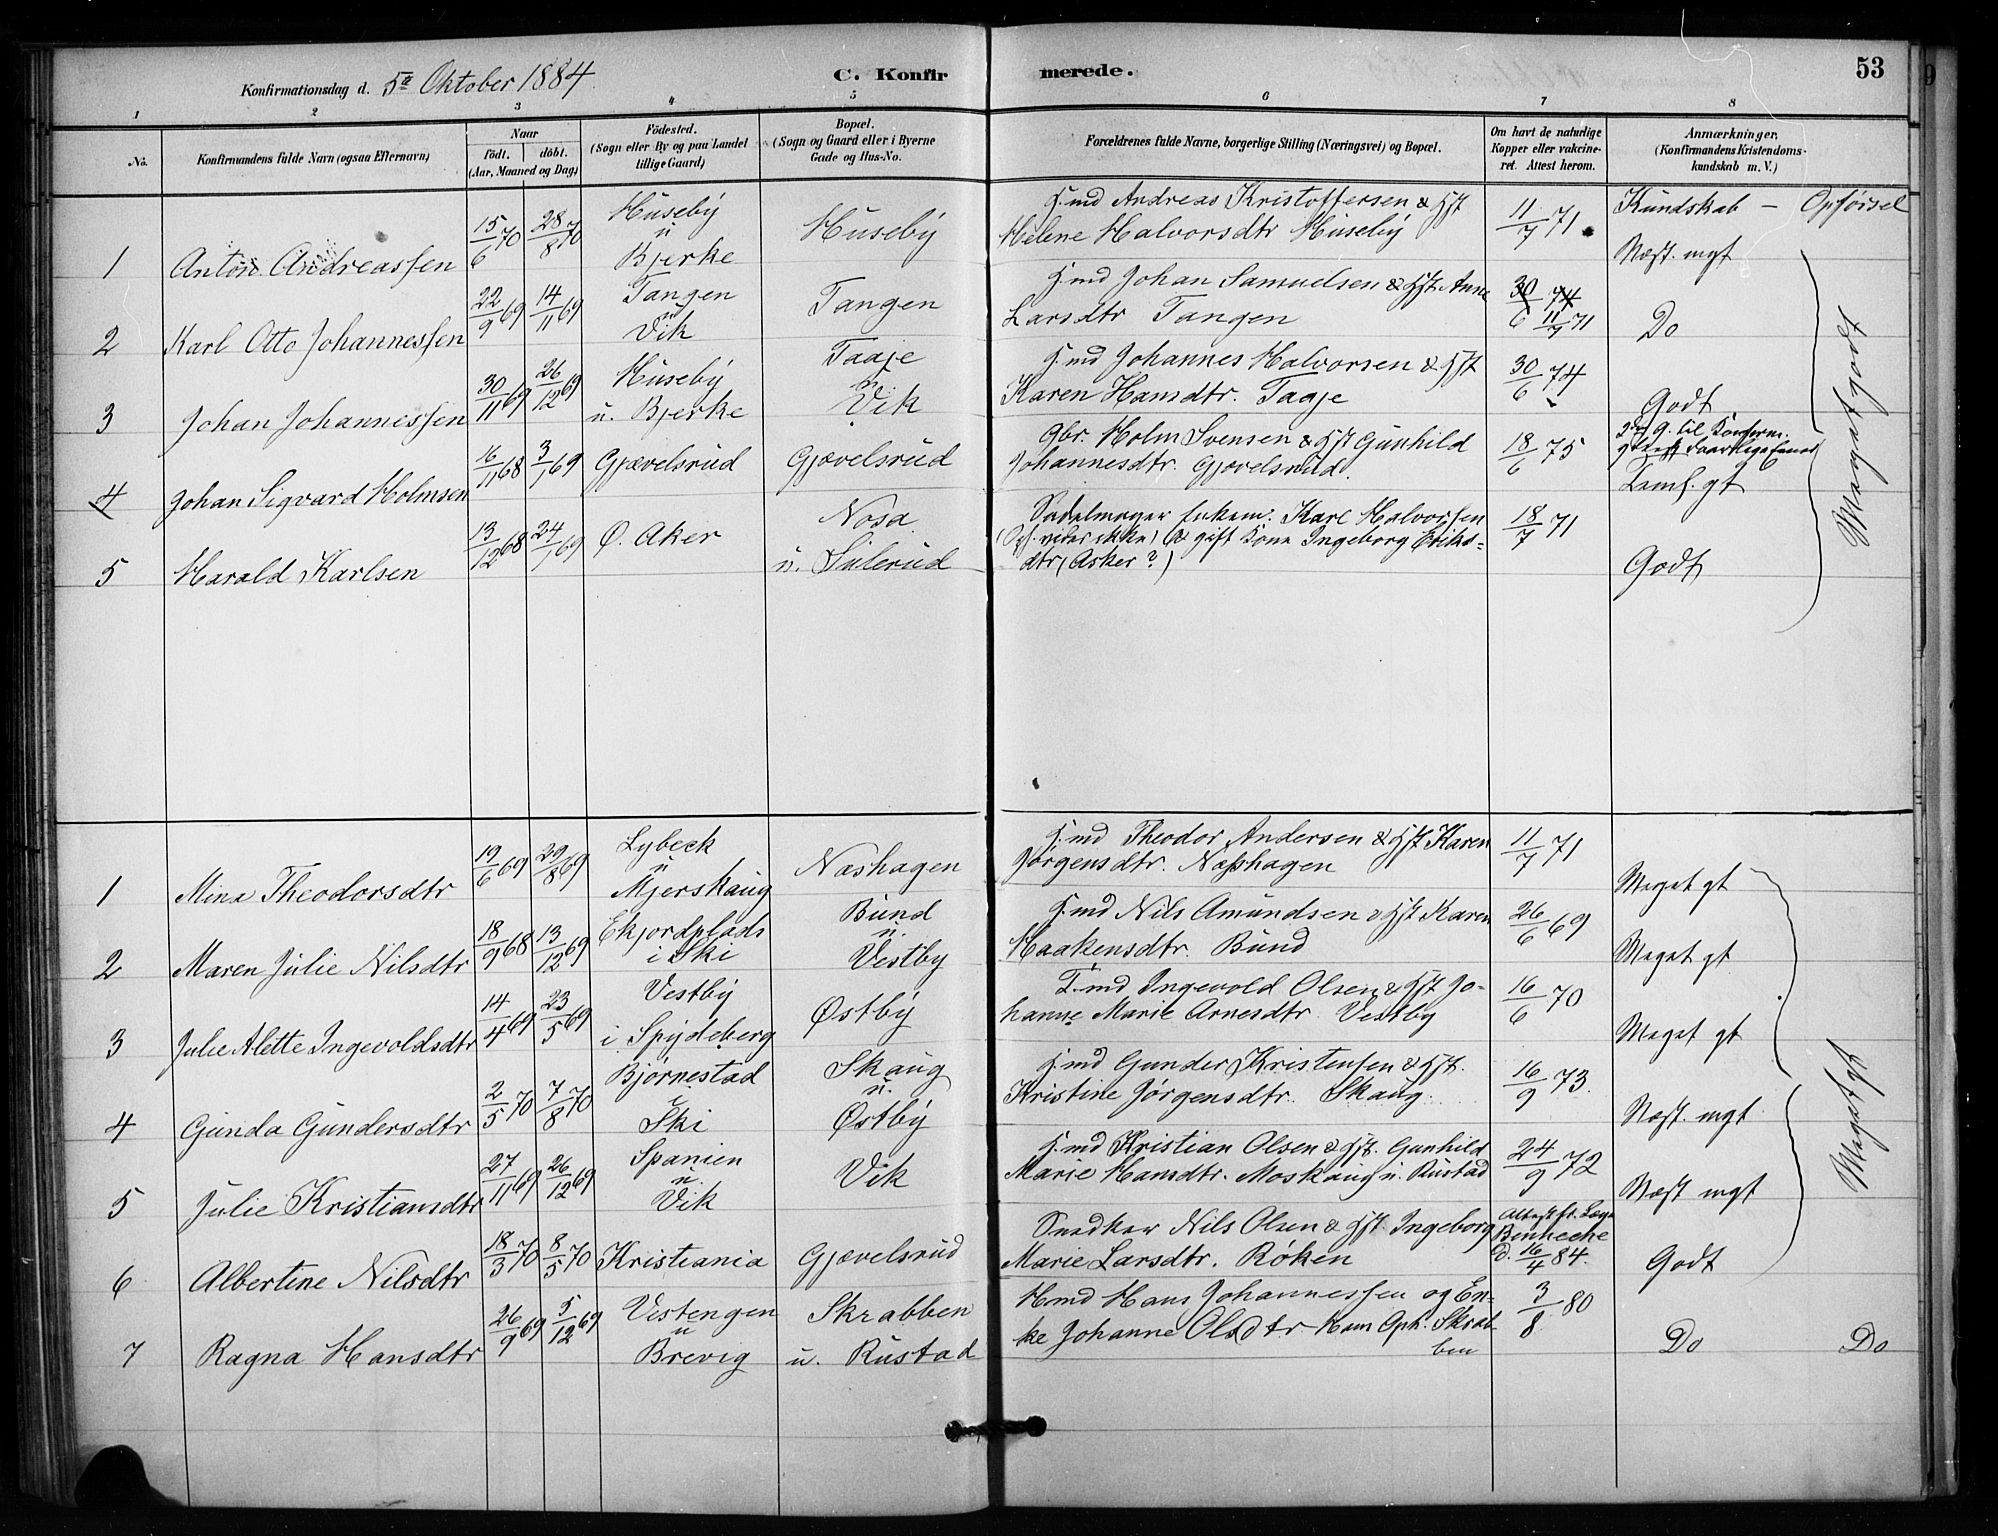 Konfirmationsdag d. 5te Oktober 1884. C. Konfirmerede. 53
1 2 3 4 5 6 7 8
No. Konfirmandens fulde Navn (ogsaa Efternavn)
Naar
födt. döbt.
(Aar, Maaned og Dag)
Födested.
(Sogn eller By og paa Landet
tillige Gaard)
Bopæl.
(Sogn og Gaard eller i Byerne
Gade og Hus-No.
Forældrenes fulde Navne, borgerlige Stilling (Næringsvei) og Bopæl.
Om havt de naturlige
Kopper eller vakcine-
ret. Attest herom.
Anmærkninger,
(Konfirmandens Kristendoms-
kundskab m. V.)
Kundskab – Opførsel
1 Anton Andreassen 15/6 70 28/8 70 Huseby u Bjerke Huseby
G.md Andreas Kristoffersen & Hst
Helene Halvorsdtr Huseby 11/7 71 Næst. mgt
2 Karl Otto Johannessen 22/9 69 14/11 69 Tangen u Vik Tangen
G.md Johan Samuelsen & Hst Anne
Larsdtr Tangen 30/6 74 11/7 71 Do
3 Johan Johannessen 30/11 69 26/12 69 Huseby u. Bjerke Taaje u Vik
G.md Johannes Halvorsen & Hst
Karen Hansdtr. Taaje 30/6 74 Godt
4 Johan Sigvard Holmsen 16/11 68 3/1 69 Gjævelsrud Gjævelsrud
Gbr. Holm Svensen & Hst Gunhild
Johannesdtr. Gjævelsrud. 18/6 75 Temf. gt
5 Harald Karlsen 13/12 68 24/1 69 Ø. Aker Nosa u. Sulerud
Sadelmager Enkem. Karl Halvorsen
gift Kone Ingeborg Eriks-
dtr (Asker?) 18/7 71 Godt
Meget godt
1 Mina Theodorsdtr 19/6 69 29/8 69 Lybeck u Mjerskaug Næshagen
G.md Theodor Andersen & Hst Karen
Jørgensdtr. Næshagen 11/7 71 Meget gt
2 Maren Julie Nilsdtr 18/9 68 13/12 69 Ekjordplads i Ski Bund u. Vestby
G.md Nils Amundsen & Hst Karen
Haakensdtr. Bund 26/6 69 Meget gt
3 Julie Alette Ingevoldsdtr 14/4 69 23/5 69 Vestby i Spydeberg Østby
I.md Ingevold Olsen & Hst Jo-
hanne Marie Arnesdtr. Vestby 16/6 70 Meget gt
4 Gunda Gundersdtr 2/5 70 7/8 70 Bjørnestad i Ski Skaug u. Østby
G.md Gunder Kristensen & Hst.
Kristine Jørgensdtr. Skaug. 16/9 73. Næst. mgt
5 Julie Kristiansdtr 27/11 69 26/12 69 Spanien u. Vik Vik
G.md Kristian Olsen & Hst. Gunhild
Marie Hansdtr. Moskaug u. Rustad 24/9 72 Næst mgt
6 Albertine Nilsdtr 18/3 70 8/5 70 Kristiania Gjævelsrud
Snedker Nils Olsen & Hst. Ingeborg
Marie Larsdtr. Røken Attest fr. Læge
d. 16/4 84. Godt
Meget gt
7 Ragna Hansdtr 26/9 69 5/12 69 Vestengen u Brevig Skrabben u. Rustad
Hmd Hans Johannessen og En-
ke Johanne Olsdtr Ham Oph. Skrab-
ben 3/8 80 Do Do